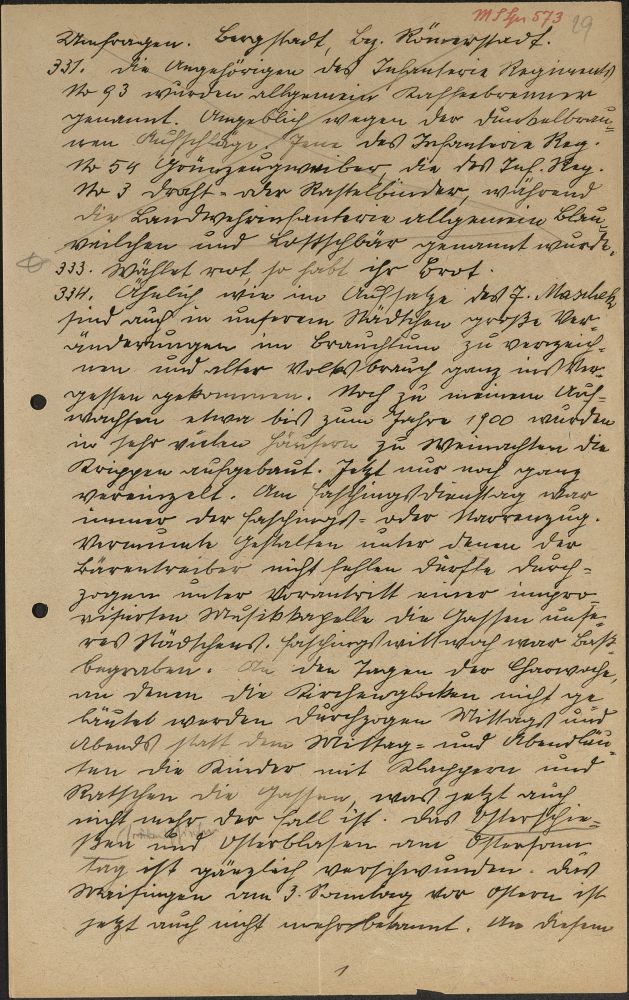 29
Umfragen. Bergstadt, Bez. Römerstadt.
331. Die Angehörigen des Infanterie Regiments
No 93 wurden allgemein Kaffeebrenner
genannt. Angeblich wegen der dunkelbrau-
nen Aufschläge. Jene des Infanterie Reg.
No 54 Grünzeugweiber, die des Inf. Reg.
No 3 Draht- oder Rastelbinder, während
die Landwehrinfanterie allgemein Blau-
veilchen und genannt wurde.
333. Wählet rot, so habt ihr Brot.
334. Ähnlich wie im Aufsatze des J. Maschek
sind auch in unserem Städtchen große Ver-
änderungen im Brauchtum zu verzeich-
nen und alter Volksbrauch ganz ins Ver-
gessen gekommen. Noch zu meinem Auf-
wachsen etwa bis zum Jahre 1900 wurden
in sehr vielen Häusern zu Weinachten die
Krippen aufgebaut. Jetzt nur noch ganz
vereinzelt. Am Faschingsdienstag war
immer der Faschings- oder Narrenzug.
Vermumte Gestalten unter denen der
Bärentreiber nicht fehlen durfte durch-
zogen unter Vorantritt einer impro-
visirten Musikkapelle die Gassen unse-
res Städtchens. Faschingsmittwoch war Baß-
begraben. An den Tagen der Charwoche,
an denen die Kirchenglocken nicht ge-
läutet werden durchzogen Mittags und
Abends statt dem Mittag- und Abendläu-
ten die Kinder mit Klappern und
Ratschen die Gassen, was jetzt auch
nicht mehr der Fall ist. Das Osterschie-
ßen und Osterblasen am Ostersonn-
tag ist gänzlich verschwunden. Das
Maisingen am 3. Sonntag vor Ostern ist
jetzt auch nicht mehr bekannt. An diesem
1